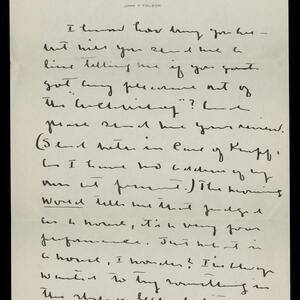 JOHN P. TOLSON
I know how busy you be—
but will you send me a
line telling me if you guys
got any pleasure out of
the "                "? And
please send me your review.
(Send letter in care of Knopf,
as I have no address of my
own at present.) The morning
World tells me that judged
as a novel, it's a very poor
performance. Just what is
a novel, I wonder? I've always
wanted to try something in
the style of